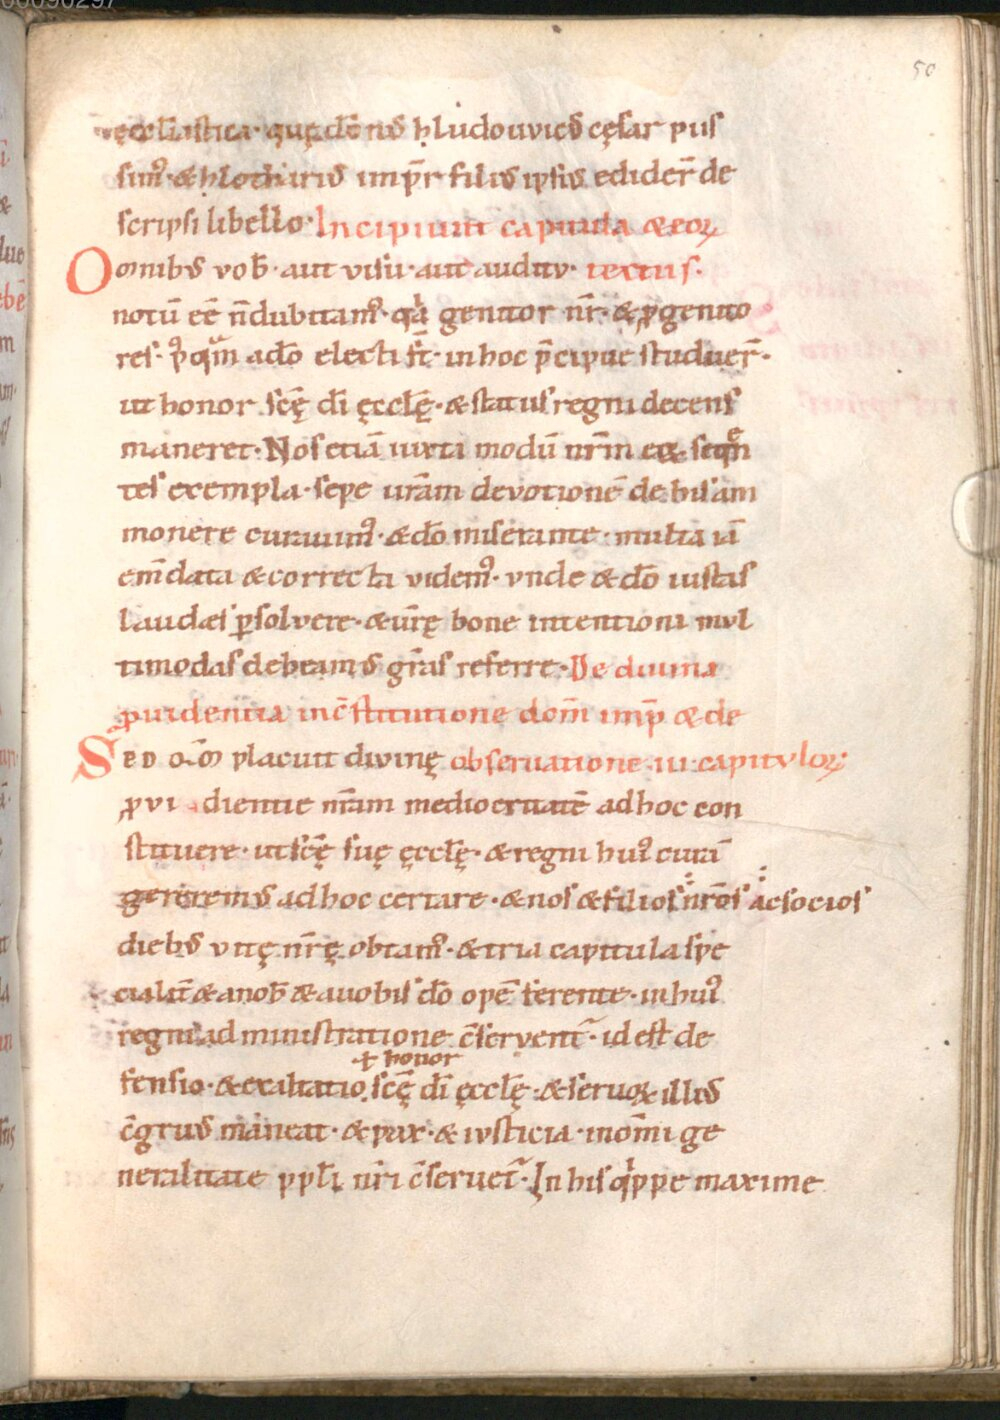 00090297
50
ęccl̄iastica· quę dom̄ nr̄s hludouuicus cęsar piis
sim᷒· & hlotharius imp̄r filius ipsius edider̄ de
scripsi libello· Incipiunt capitula & eoꝝ
Omnibus vob̄· aut visu· aut auditu· textus·
notū eē n̄ dubitam᷒· qͥa genitor nr̄· & ꝓgenito
res· p᷒qͣm a dō electi st̄· in hoc p̄cipue studuer̄·
ut honor scę̄ dī ęccl̄ę· & status regni decens
maneret· Nos etiā iuxta modū nr̄m eoꝝ seqͤn
tes exempla· sepe ur̄am devotionē de his am
monere curauim᷒· & dō miserante· multa iā
em̄data & correcta videm᷒· vnde & dō iustas
laudes ꝑsolvere· & ur̄ę bone intentioni mul
timodas debeamus gr̄as referre· De diuina
ꝓuidentia in c̄stitutione dom̄ imp̄ & de
Sed qm̄ placuit divinę obseruatione· iii· capituloꝝ
ꝓvi dientie nr̄am mediocritatē ad hoc con
stituere· ut scę̄ suę ęccl̄ę· & regni hui᷒ curā
gereremus ad hoc certare· & nos & filios nr̄os ac socios
diebus vitę nr̄ę obtam᷒· & tria capitula spe
cialit̄ & a nob̄ & a uobis dō opē ferente· in hui᷒
regni administratione c̄servent̄· id est de
+ honor
fensio· & exaltatio scę̄ dī ęccl̄ę· & seruoꝝ illius
c̄gruus maneat· & pax· & iusticia· in om̄i ge
neralitate ppl̄i nr̄i c̄seruet̄· In his qͥppe maxime